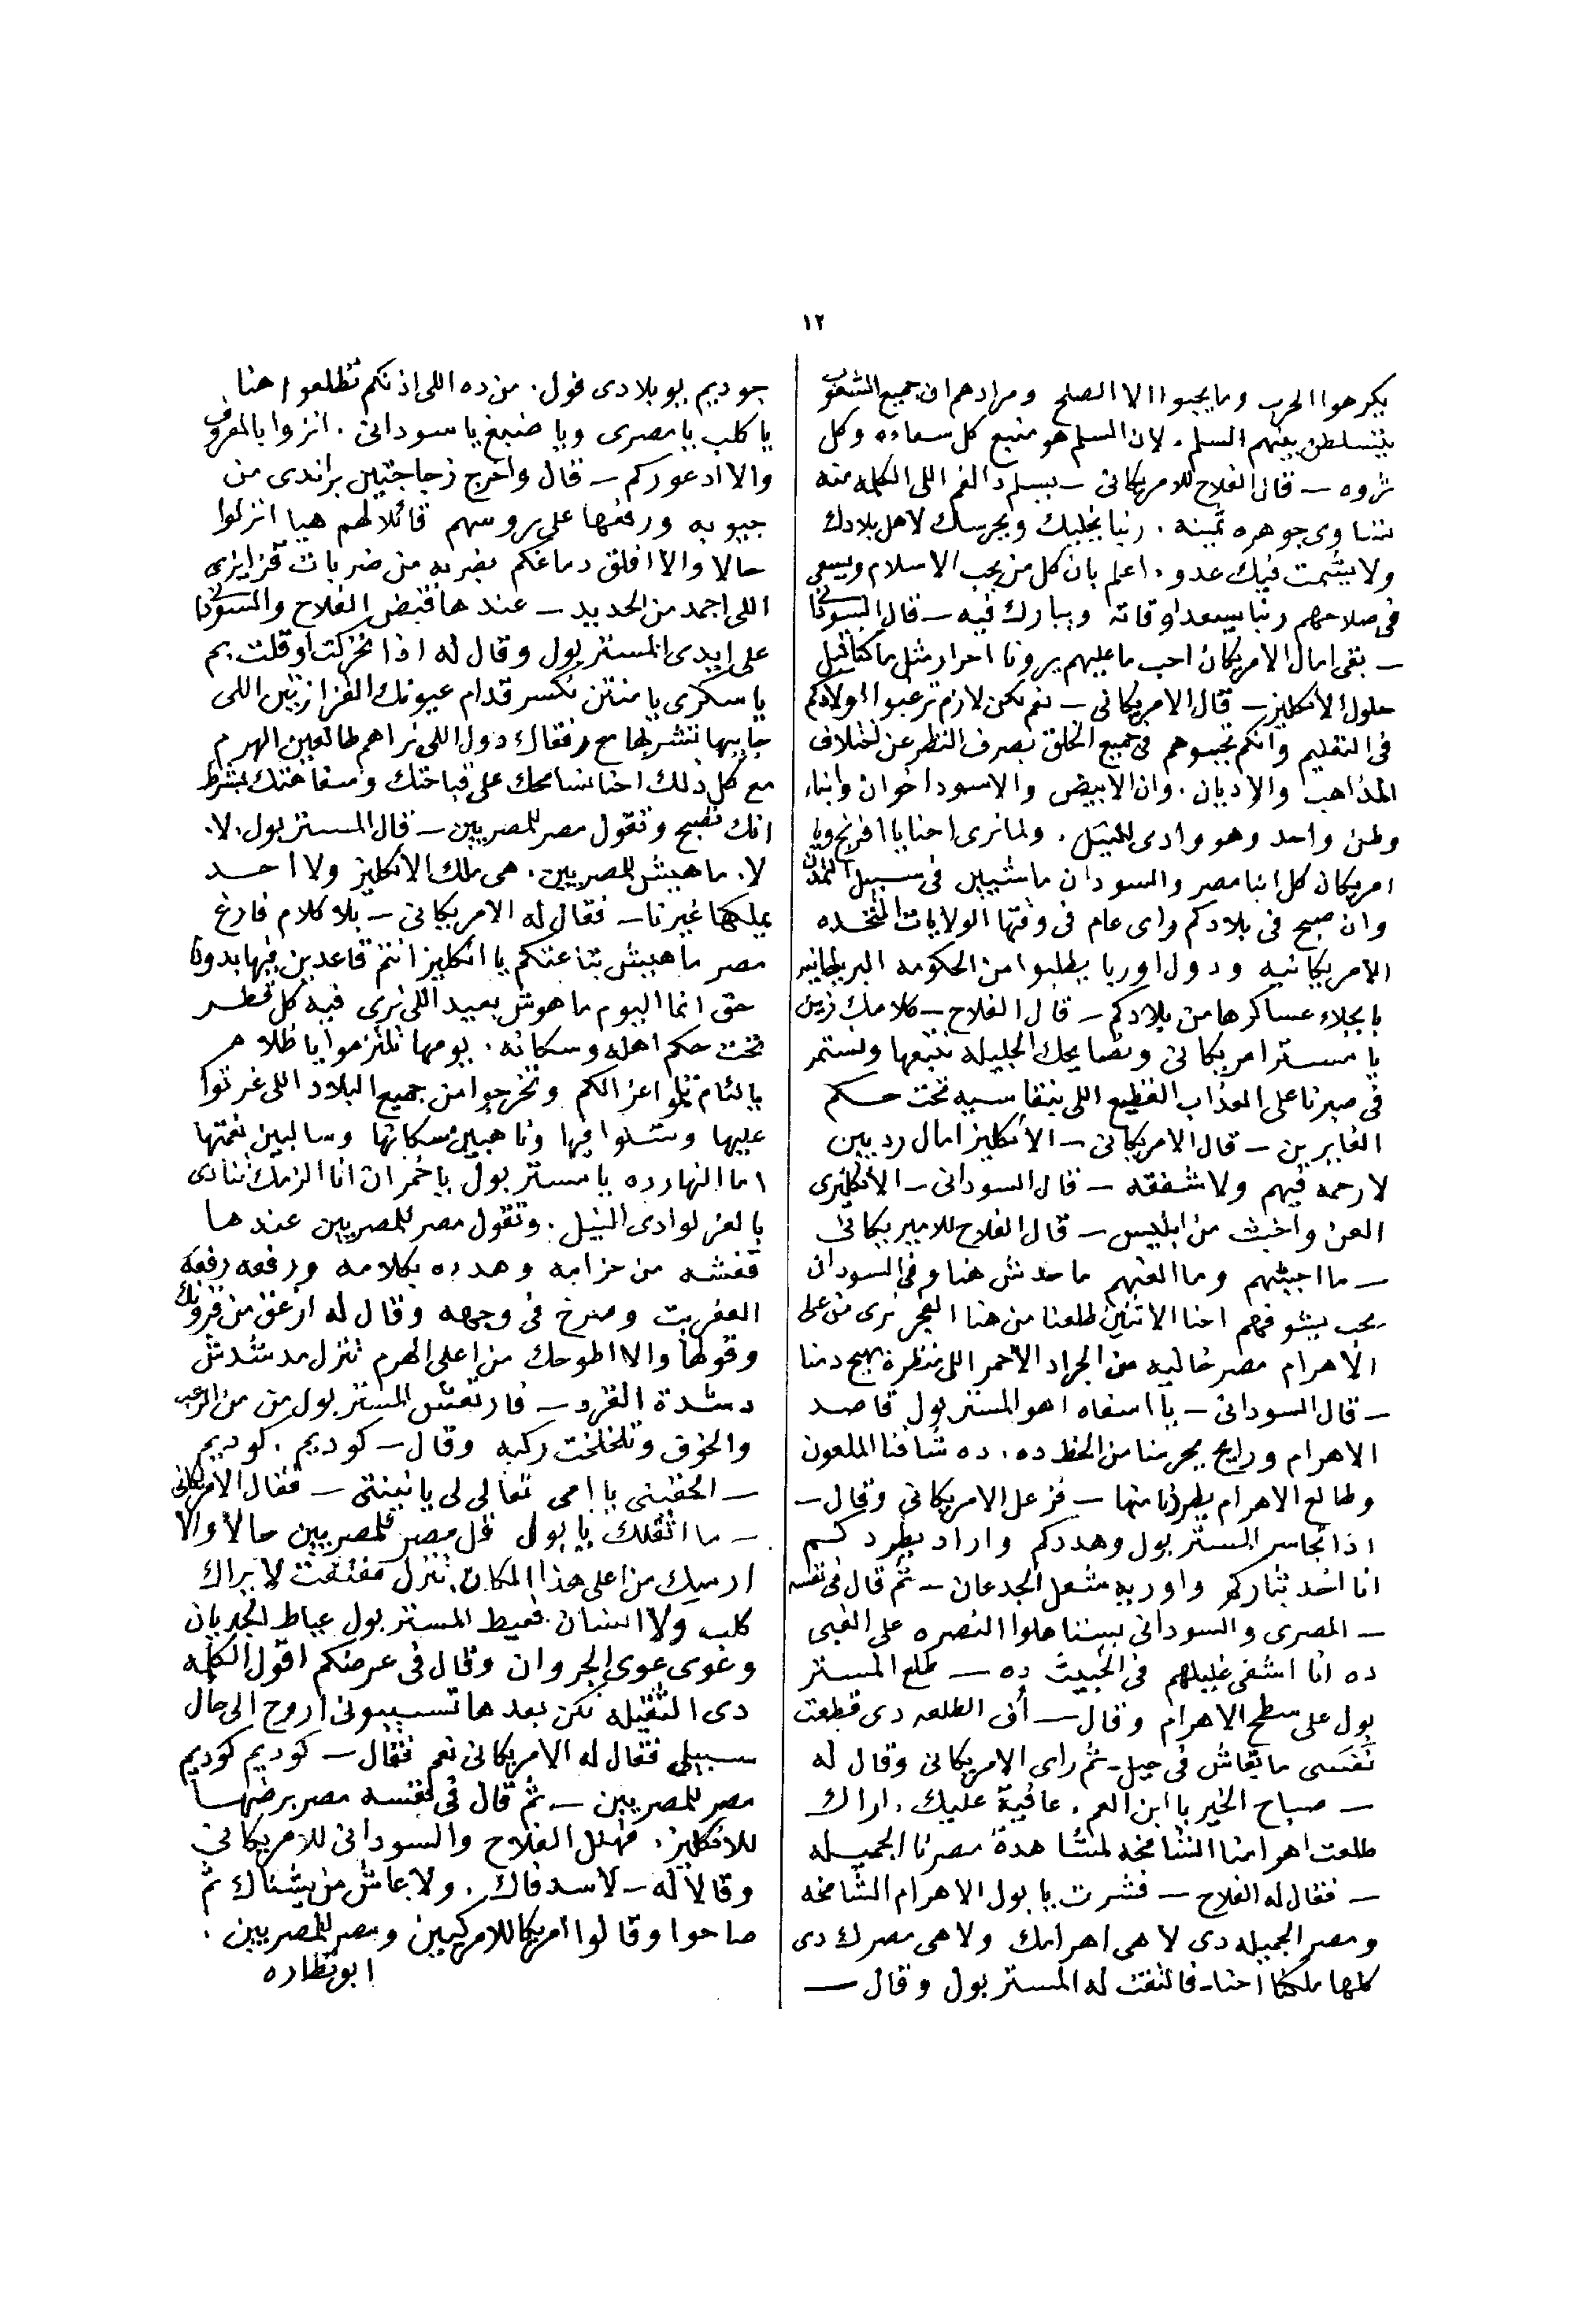 ١٢
يكرهوا الحرب وما يحبوا الا الصلح ومرادهم ان جميع الشعوب
يتسلطن بينهم السلم. لان السلم هو منبع كل سعاده وكل
ثروه – قال الفلاح للامريكانى – يسلم دا الفم اللى الكلمه منه
تساوى جوهره ثمينه. ربنا يخليك ويحرسك لاهل بلادك
ولا يشمت فيك عدو. اعلم بان كل من يحب الاسلام ويسعى
فى صلاحهم ربنا يسعد اوقاته ويبارك فيه – قال السودانى
– بقى امال الامريكان احب ما عليهم يرونا احرار مثل ما كنا قبل
حلول الانكليز – قال الامريكانى – نعم لكن لازم ترغبوا اولادكم
فى التعليم وانكم تحبوهم فى جميع الخلق بصرف النظر عن اختلاف
المذاهب والاديان. وان الابيض والاسود اخوان وابناء
وطن واحد وهو وادى النيل. ولما نرى احنا يا افرنج ويا
امريكان كل ابنا مصر والسودان ماشيين فى سبيل التمدن
وان صبح فى بلادكم راى عام فى وقتها الولايات المتحده
الامريكانيه ودول اوربا يطلبوا من الحكومه البريطانيه
بانجلاء عساكرها من بلادكم – قال الفلاح – كلامك زين
يا مستر امريكانى ونصايحك الجليله نتبعها ونستمر
فى صبرنا على العذاب الفظيع اللى بنقاسيه تحت حكم
الغابرين – قال الامريكانى – الانكليز امال رديين
لا رحمه فيهم ولا شفقه – قال السودانى – الانكليزى
العن واخبث من ابليس – قال الفلاح للاميريكانى
– ما اجبنهم وما العنهم ما حدش هنا وفى السودان
يحب يشوفهم احنا الاتنين طلعنا من هنا الفجر نرى من على
الاهرام مصر خاليه من الجراد الاحمر اللى منظره يهيج دمنا
– قال السودانى – يا اسفاه اهو المستر بول قاصد
الاهرام ورايح يحرمنا من الحظ ده. ده شافنا الملعون
وطالع الاهرام يطردنا منها – فزعل الامريكانى وقال –
اذا تجاسر المستر بول وهددكم واراد يطردكم
انا اخد بتاركم واوريه شغل الجدعان – ثم قال فى نفسه
– المصرى والسودانى يستاهلوا النصره على الغبى
ده انا اشفى غليلهم فى الخبيث ده – طلع المستر
بول على سطح الاهرام وقال – أف الطلعه دى قطعت
نفسى ما بقاش فى حيل – ثم راى الامريكانى وقال له
– صباح الخير يا ابن العم. عافية عليك. اراك
طلعت اهرامنا الشامخه لمشاهدة مصرنا الجميله
– فقال له الفلاح – فشرت يا بول الاهرام الشامخه
ومصر الجميله دى لا هى اهرامك ولا هى مصرك دى
كلها ملكنا احنا – فالتفت له المستر بول وقال –
جوديم يو بلادى فول. من ده اللى اذنكم تطلعوا هنا
يا كلب يا مصرى ويا ضبع يا سودانى. انزلوا بالمعروف
والا ادعوركم – قال واخرج زجاجتين براندى من
جيوبه ورفعها على روسهم قائلا لهم هيا انزلوا
حالا والا افلق دماغكم بضربه من ضربات قزايزى
اللى اجمد من الحديد – عندها قبض الفلاح والسودانى
على ايدى المستر بول وقال له اذا تحركت او قلت بم
يا سكرى يا منتن نكسر قدام عيونك القزازتين اللى
جايبها تشربها مع رفقاك دول اللى نراهم طالعين الهرم
مع كل ذلك احنا نسامحك على قباحتك وسفاهتك بشرط
انك تصيح وتقول مصر للمصريين – قال المستر بول. لا.
لا. ما هيش للمصريين. هى ملك الانكليز ولا احد
يملكها غيرنا – فقال له الامريكانى – بلا كلام فارغ
مصر ما هيش بتاعتكم يا انكليز انتم قاعدين فيها بدون
حق انما اليوم ما هوش بعيد اللى نرى فيه كل قطر
تحت حكم اهله وسكانه. يومها تلتزموا يا ظلام
يا لئام تلموا عزالكم وتخرجوا من جميع البلاد اللى غرتوا
عليها وتسلوا فيها وناهبين سكانها وسالبين نعمتها
اما النهارده يا مستر بول يا خمران انا الزمك تنادى
بالعز لوادى النيل. وتقول مصر للمصريين عندها
قفشه من حزامه وهدده بكلامه ورفعه رفعة
العفريت وصرخ فى وجهه وقال له ازعق من قرونك
وقولها والا اطوحك من اعلى الهرم تنزل مدشدش
دشدة القرد – فارتعش المستر بول من من الرعب
والخوف وتلخلخت ركبه وقال – كوديم. كوديم
– الحقينى يا امى تعالى لى يا نينتى – فقال الامريكانى
– ما اثقلك يا بول قل مصر للمصريين حالا والا
ارميك من اعلى هذا المكان. تنزل مفتفت لا يراك
كلب ولا انسان. فعيط المستر بول عياط الجربان
وعوى عوى الجروان وقال فى عرضكم اقول الكلمه
دى الثقيله لكن بعدها تسيبونى اروح الى حال
سبيلى فقال له الامريكانى نعم فقال – كوديم كوديم
مصر للمصريين – ثم قال فى نفسه مصر برضها
للانكليز. فهلل الفلاح والسودانى للامريكانى
وقالا له – لا سد فاك. ولا عاش من يشناك ثم
صاحوا وقالوا امريكا للامركيين ومصر للمصريين.
ابو نظاره